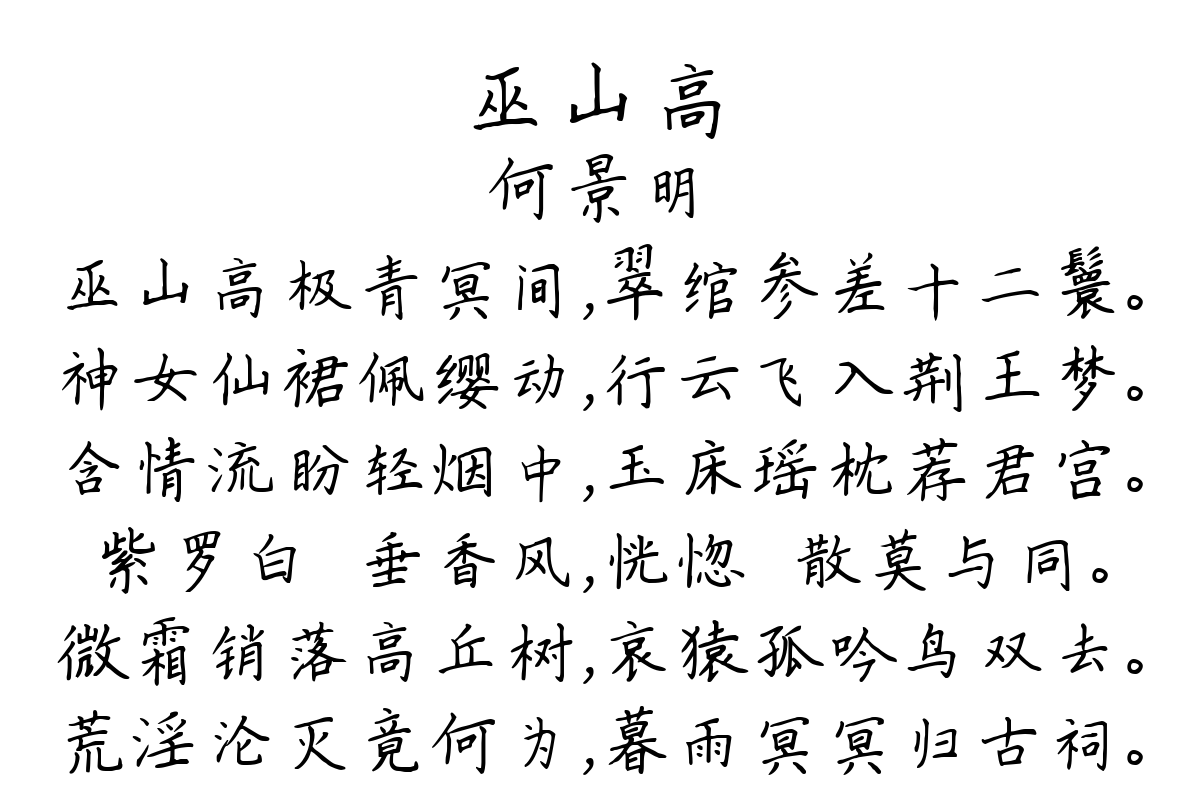 巫山高
何景明
巫山高极青冥间,翠绾参差十二鬟。
神女仙裙佩缨动,行云飞入荆王梦。
含情流盼轻烟中,玉床瑶枕荐君宫。
紫罗白 垂香风,恍惚 散莫与同。
微霜销落高丘树,哀猿孤吟鸟双去。
荒淫沦灭竟何为,暮雨冥冥归古祠。